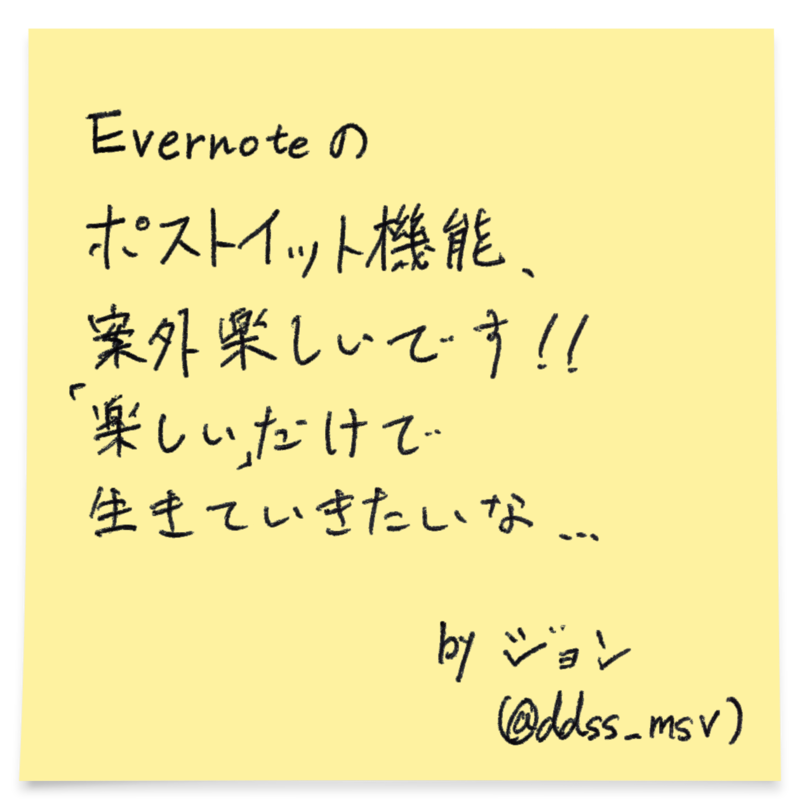 Evernoteの
ポストイット機能、
案外楽しいです!!
「楽しい」だけで
生きていきたいな...
by ジョン
(@ddss_msv)